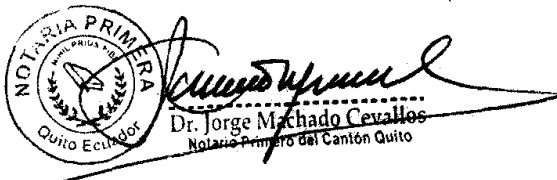 NOTARIA PRIMERA
NIHIL PRIUS FIDE
Quito Ecuador
Dr. Jorge Machado Cevallos
Notario Primero del Cantón Quito